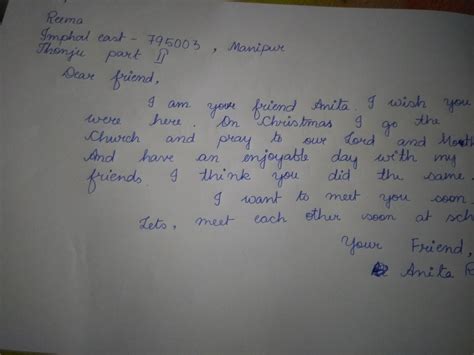 Reema
Imphal east - 795003, Manipur
Thonju part II
Dear friend,
I am your friend Anita. I wish you
were here. On Christmas I go the
Church and pray to our Lord and
And have an enjoyable day with my
friends. I think you did the same.
I want to meet you soon
Lets, meet each other soon at
Your Friend,
Anita